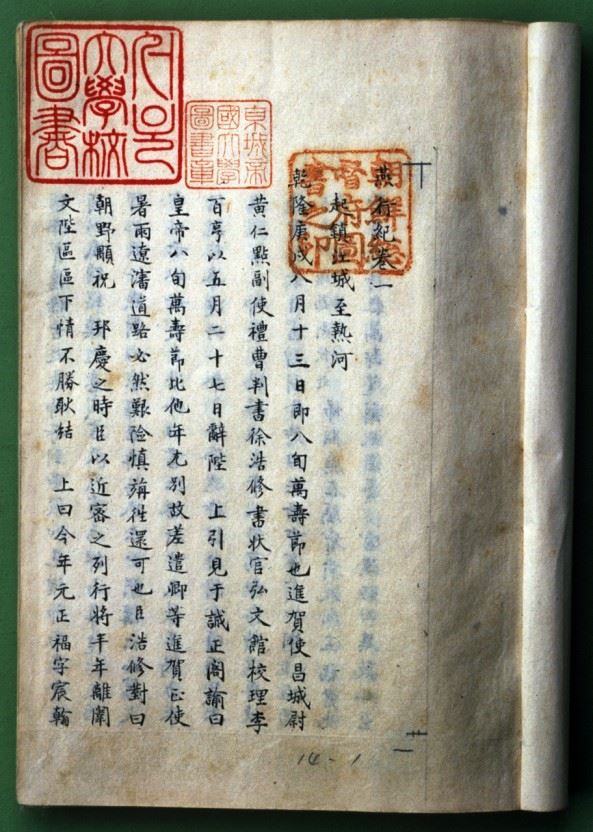 燕行紀卷一
起鎮江城至熱河
乾隆庚戌八月十三日即八旬萬壽節也進賀使昌城尉
黃仁點副使禮曹判書徐浩修書狀官弘文館校理李
百亨以五月二十七日辭陛 上引見于誠正閣諭曰
皇帝八旬萬壽節比他年尤別故差遣卿等進賀正使
暑雨遼瀋道路必然艱險慎旃徃還可也臣浩修對曰
朝野顒祝 邦慶之時臣以近密之列行將半年離闈
文陛區區下情不勝耿結 上曰今年元正福字宸翰
朝鮮總督府圖書之印
京城帝國大學圖書章
서울大學校圖書
14-1